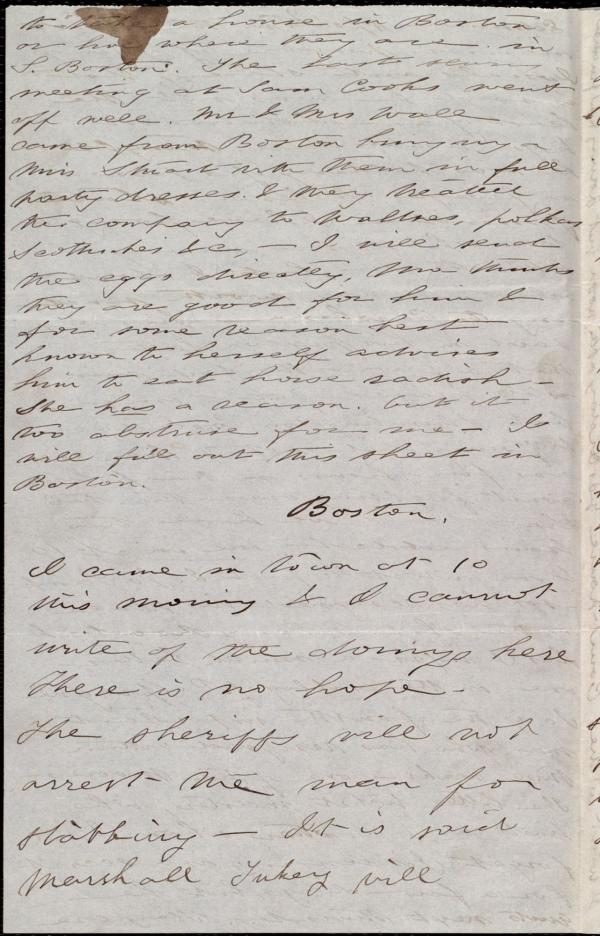 to take a house in Boston
or live where they are in
S. Boston. The last sewing
meeting at Sam Cooks went
off well. Mr & Mrs Wall
came from Boston bringing a
Miss Stuart with them in full
party dresses. & they treated
the company to Waltzes, polkas
Scothishes &c, — I will send
the eggs directly, Mrs thinks
they are good for him &
for some reason best
known to herself advises
him to eat horse radish —
She has a reason. but it
too abstruse for me — I
will fill out this sheet in
Boston.
Boston.
I came in town at 10
this morning & I cannot
write of the doings here
There is no hope —
The sheriffs will not
arrest the man for
stabbing — It is said
Marshall Tukey will